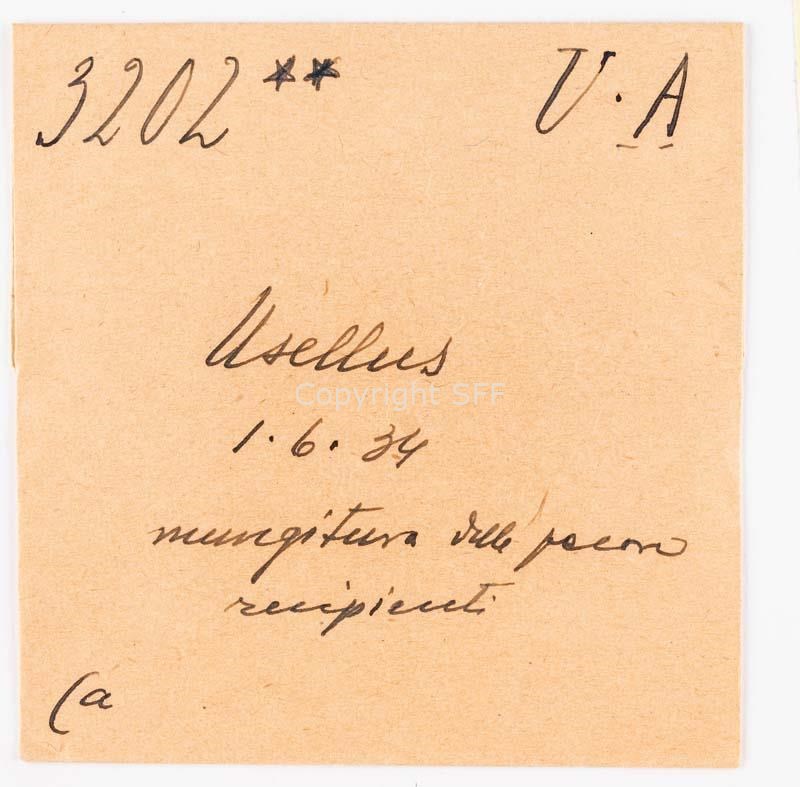 3202 ** U.A
Usellus
Copyright SFF
1.6.34
mungitura delle pecore
recipienti
(a